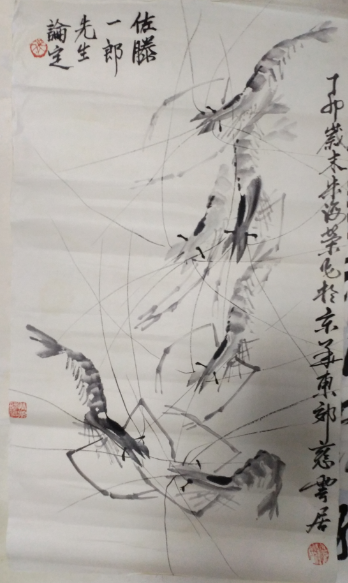 丁卯歲末朱海荣作於京华東郊慈雲居
佐滕
一郎
先生
論定